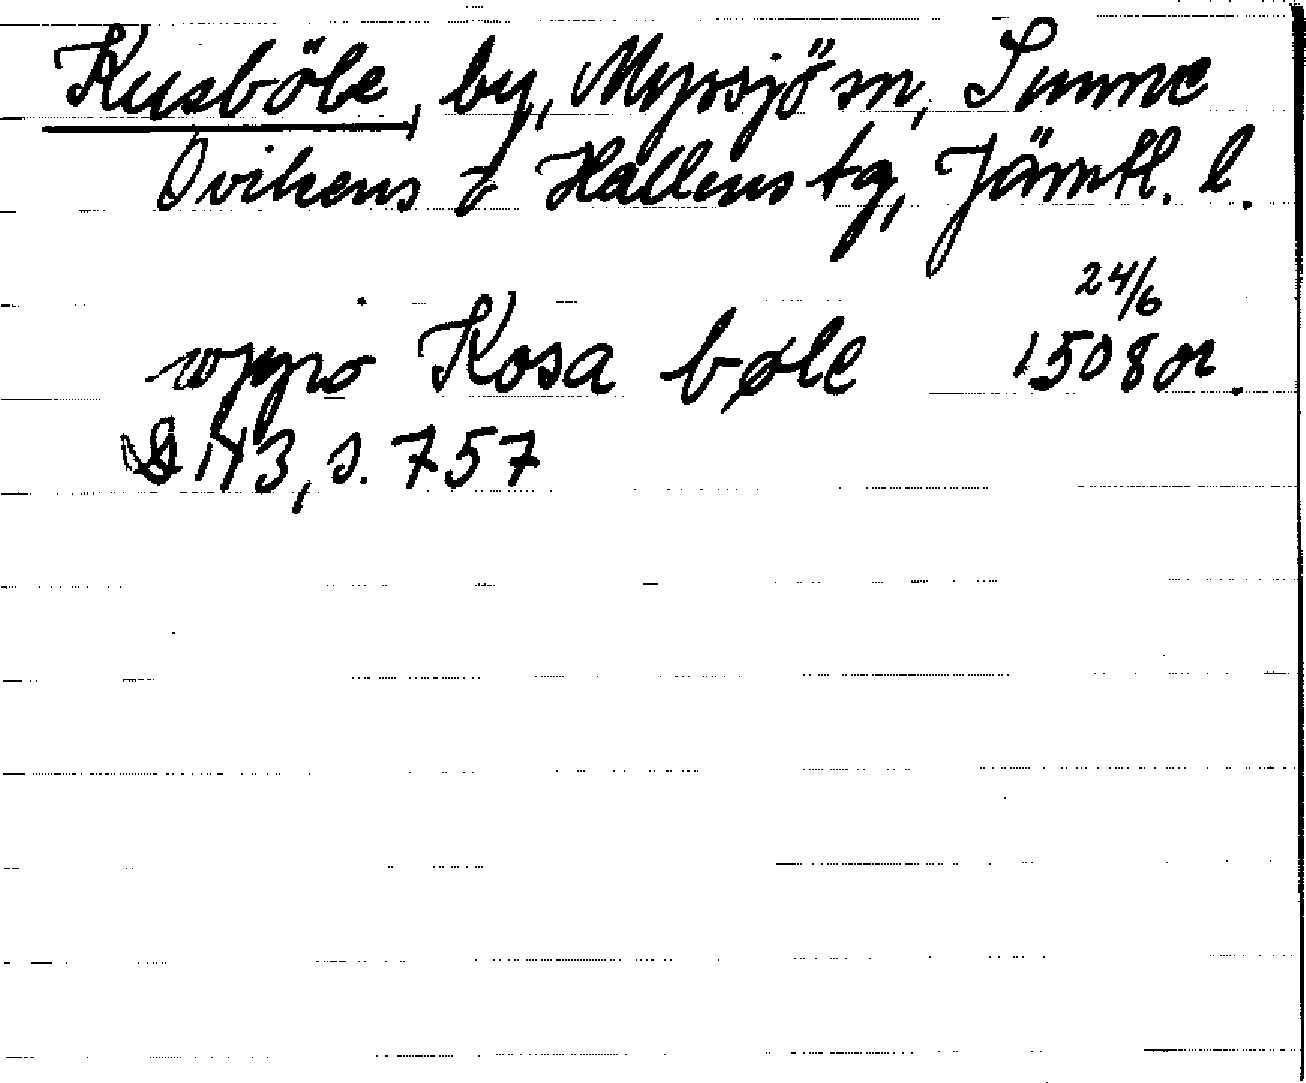 Kusböle, by, Myssjö sn, Sunne
Ovikens o Hallens tg, Jämtl. l.
24/6
oppo Kosa bøle 1508 or.
S H 3, s. 757